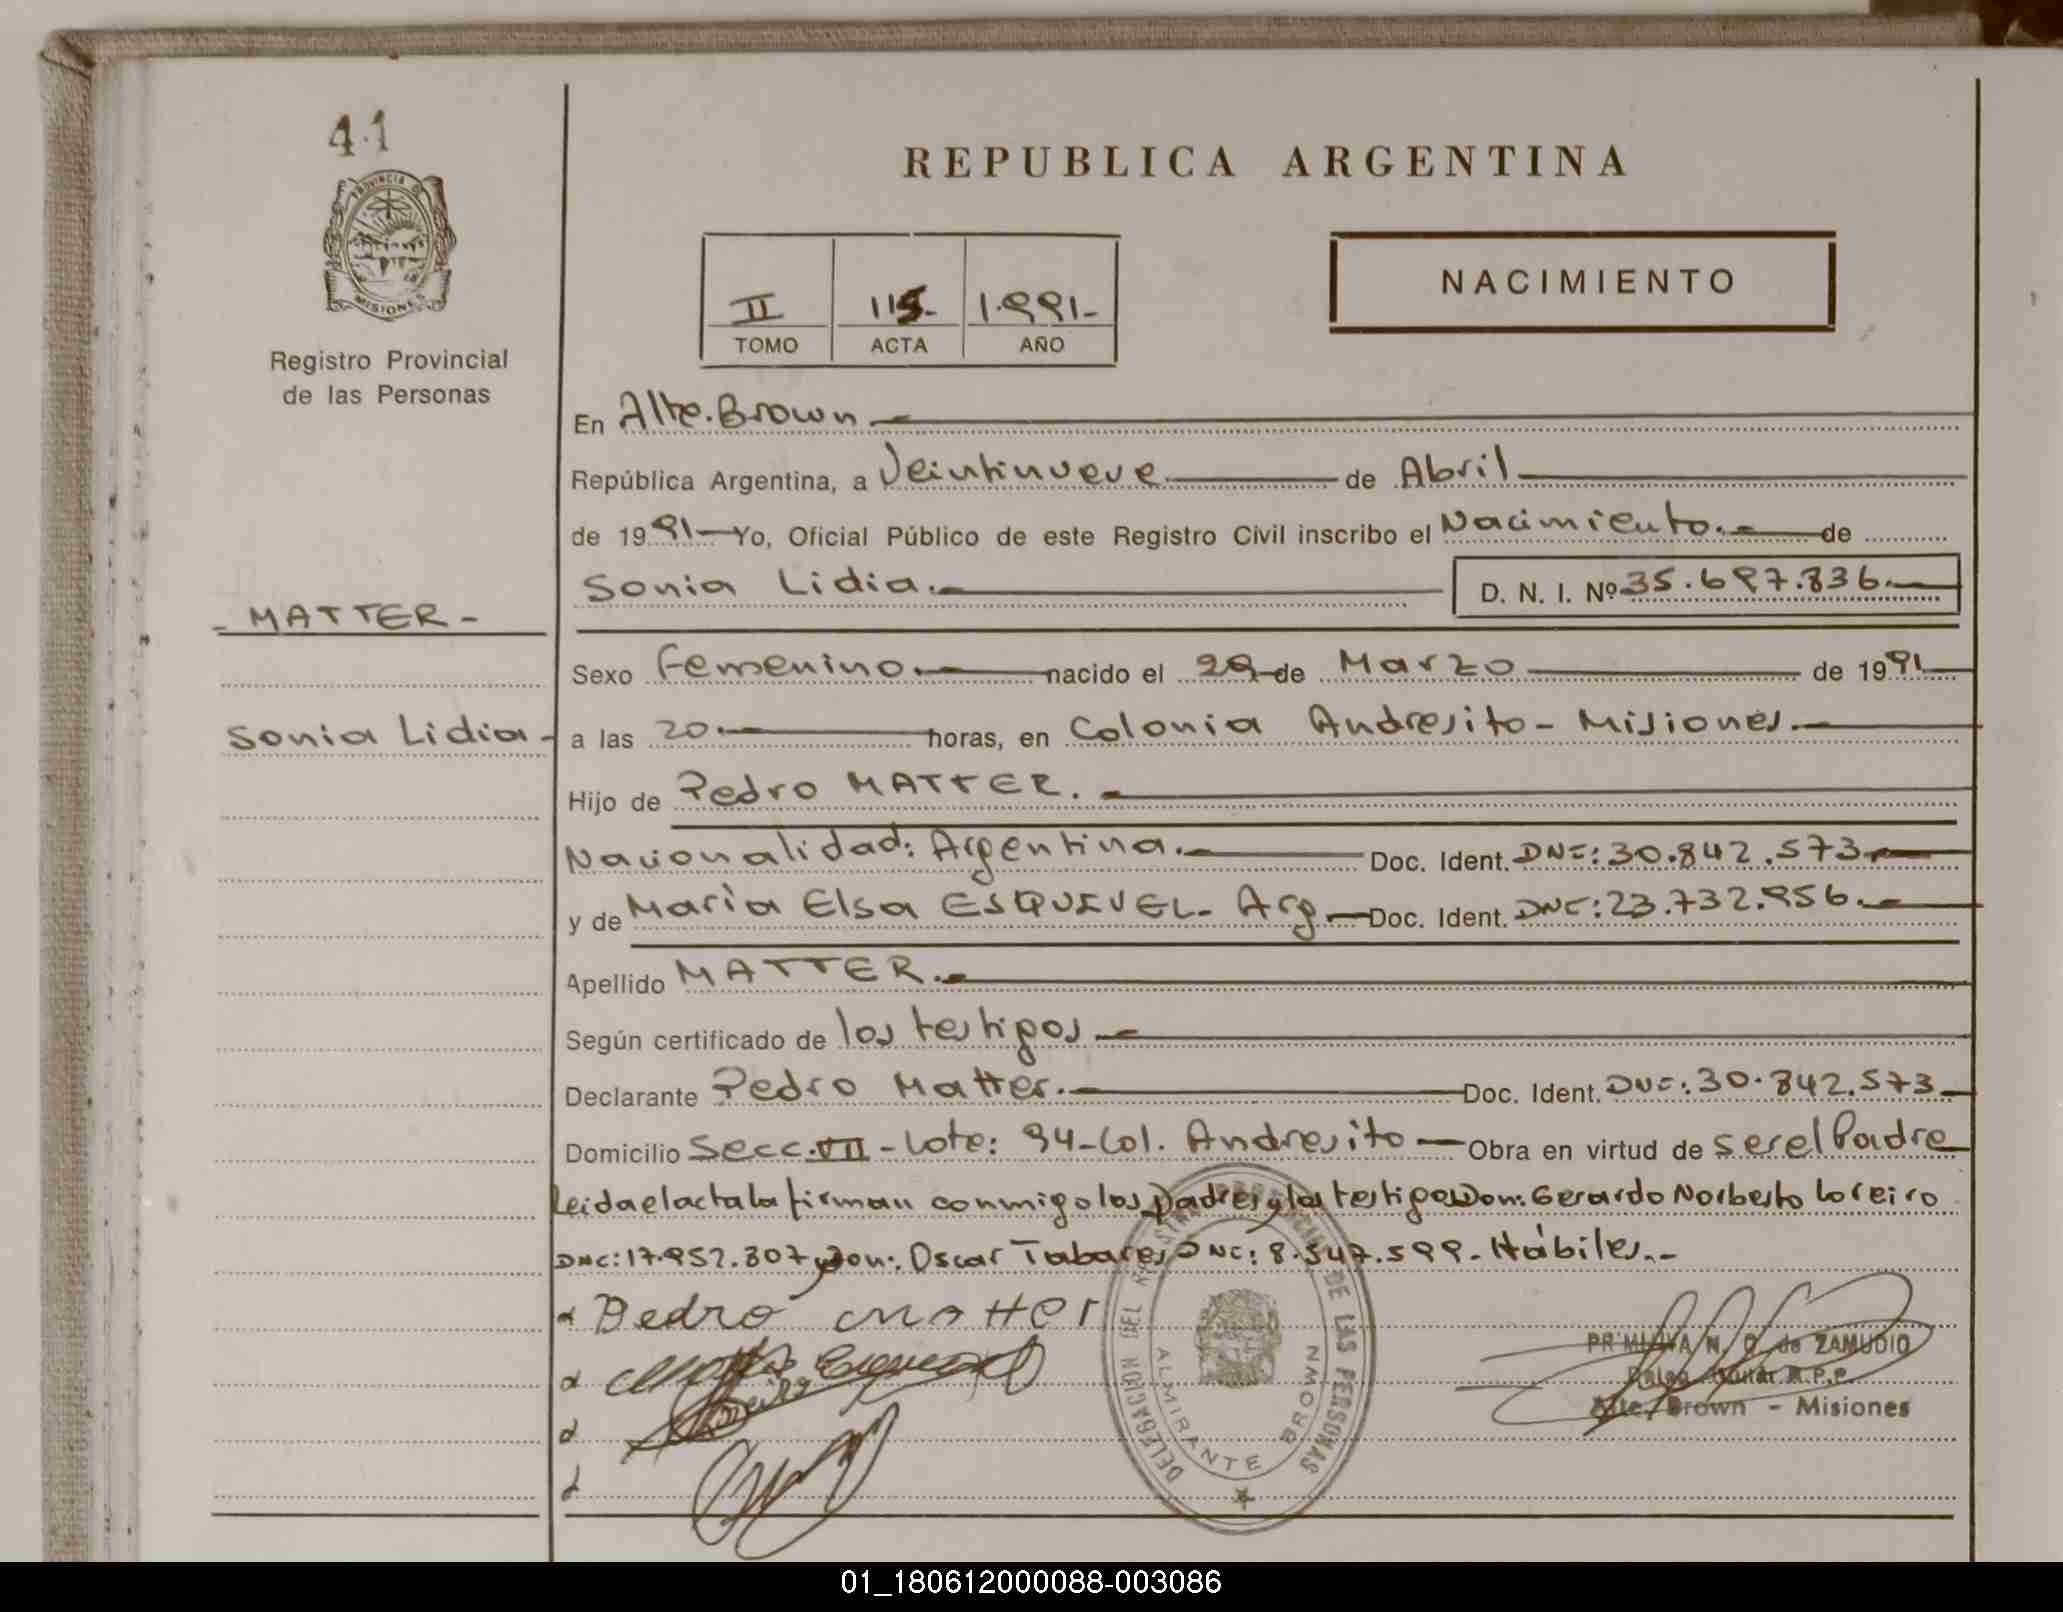 41
PROVINCIA DE
MISIONES
Registro Provincial
de las Personas
REPUBLICA ARGENTINA
II 115- 1.991-
TOMO ACTA AÑO
NACIMIENTO
En Alte. Brown
República Argentina, a Veintinueve de Abril
de 1991 Yo, Oficial Público de este Registro Civil inscribo el Nacimiento.- de
Sonia Lidia.- D. N. I. Nº 35.697.836.-
- MATTER -
Sexo Femenino.- nacido el 29 de Marzo de 1991
Sonia Lidia -
a las 20.- horas, en Colonia Andresito - Misiones.-
Hijo de Pedro MATTER.-
Nacionalidad: Argentina.- Doc. Ident. DNI: 30.842.573
y de María Elsa ESQUIVEL - Arg. Doc. Ident. DNI: 23.732.956.-
Apellido MATTER.-
Según certificado de los testigos
Declarante Pedro Matter.- Doc. Ident. DNI: 30.842.573
Domicilio Secc. VII - Lote: 94 - Col. Andresito - Obra en virtud de ser el Padre
Leida el acta la firman conmigo los padres y los testigos Don: Gerardo Norberto Loreiro
DNI: 17.952.307 y Don: Oscar Tabares DNI: 8.547.599 - Hábiles.-
Pedro Matter
DELEGACION DEL REGISTRO PROVINCIAL DE LAS PERSONAS
ALMIRANTE BROWN
PRIMITIVA N. O. de ZAMUDIO
R.P.P.
Alte. Brown - Misiones
01_180612000088-003086